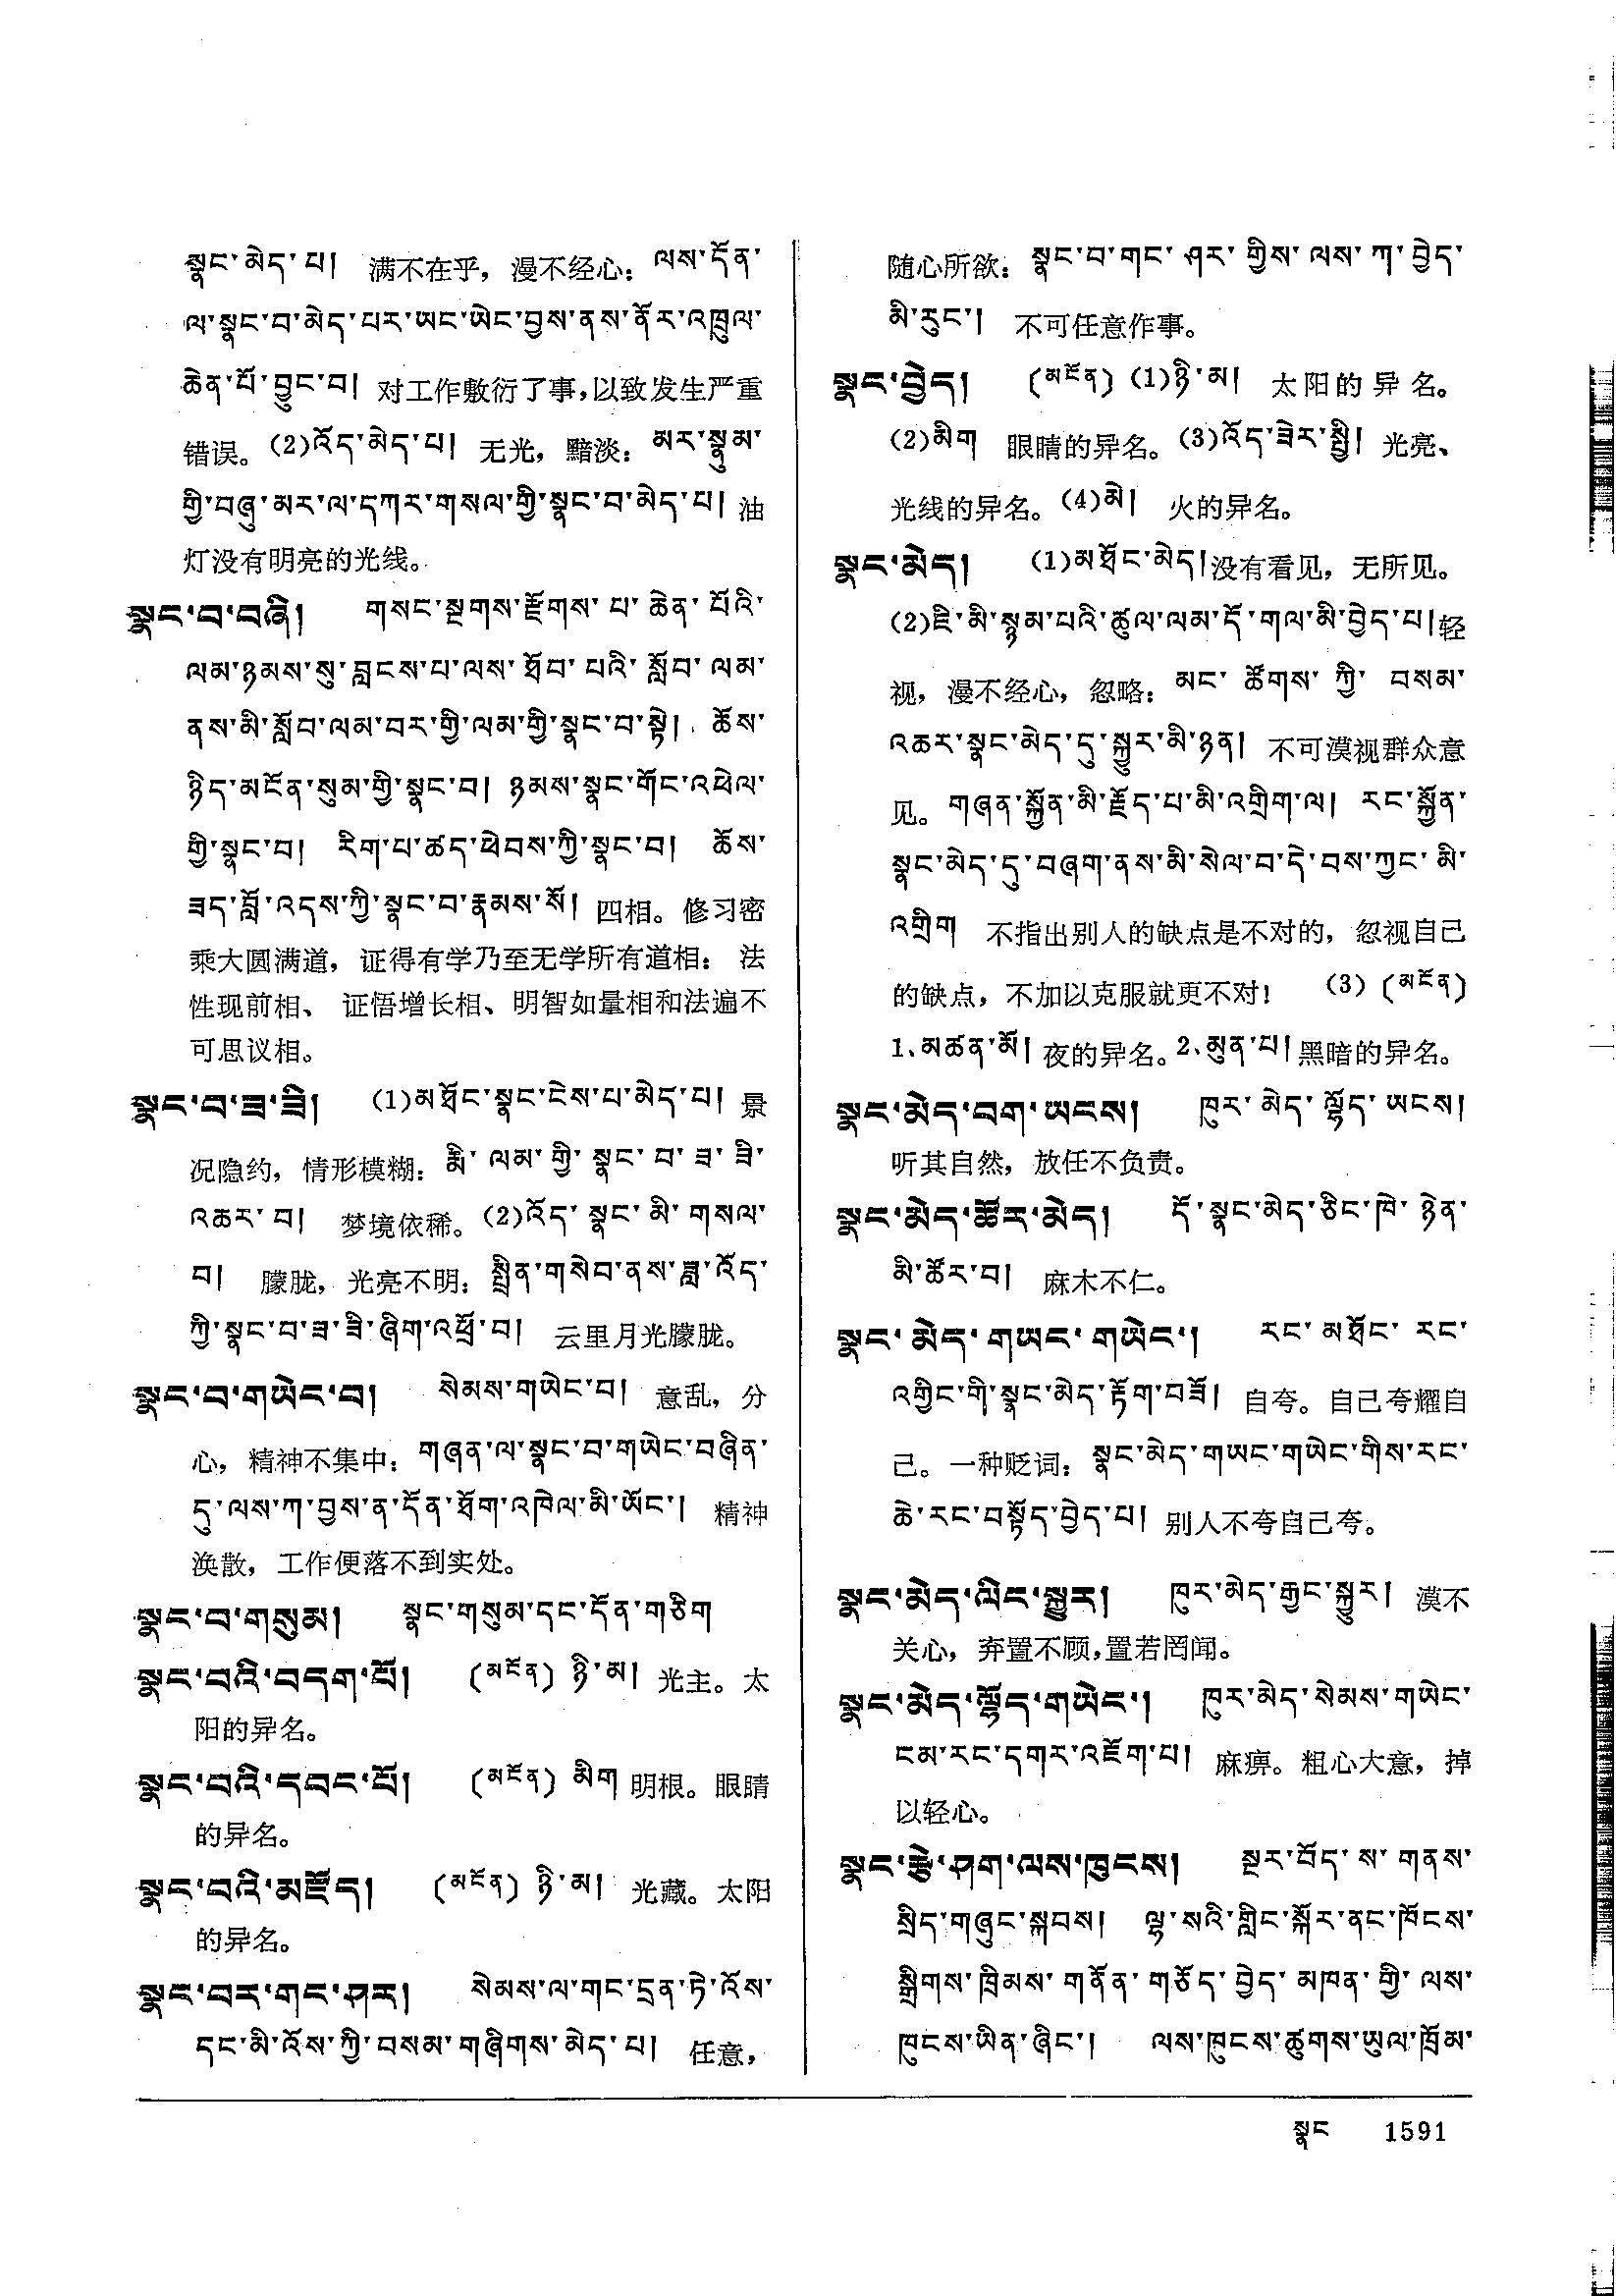 སྣང་མེད་པ། 满不在乎，漫不经心：ལས་དོན་
ལ་སྣང་བ་མེད་པར་ཡང་ཡེང་བྱས་ནས་ནོར་འཁྲུལ་
ཆེན་པོ་བྱུང་བ། 对工作敷衍了事，以致发生严重
错误。(2)འོད་མེད་པ། 无光，黯淡：མར་སྣུམ་
གྱི་བཞུ་མར་ལ་དཀར་གསལ་གྱི་སྣང་བ་མེད་པ། 油
灯没有明亮的光线。
སྣང་བ་བཞི། གསང་སྔགས་རྫོགས་པ་ཆེན་པོའི་
ལམ་ཉམས་སུ་བླངས་པ་ལས་ཐོབ་པའི་སློབ་ལམ་
ནས་མི་སློབ་ལམ་བར་གྱི་ལམ་གྱི་སྣང་བ་སྟེ། ཆོས་
ཉིད་མངོན་སུམ་གྱི་སྣང་བ། ཉམས་སྣང་གོང་འཕེལ་
གྱི་སྣང་བ། རིག་པ་ཚད་ཕེབས་ཀྱི་སྣང་བ། ཆོས་
ཟད་བློ་འདས་ཀྱི་སྣང་བ་རྣམས་སོ། 四相。修习密
乘大圆满道，证得有学乃至无学所有道相：法
性现前相、证悟增长相、明智如量相和法遍不
可思议相。
སྣང་བ་ཟ་ཟི། (1)མཐོང་སྣང་ངེས་པ་མེད་པ། 景
况隐约，情形模糊：རྨི་ལམ་གྱི་སྣང་བ་ཟ་ཟི་
འཆར་བ། 梦境依稀。(2)འོད་སྣང་མི་གསལ་
བ། 朦胧，光亮不明：སྤྲིན་གསེབ་ནས་ཟླ་འོད་
ཀྱི་སྣང་བ་ཟ་ཟི་ཞིག་འཕྲོ་བ། 云里月光朦胧。
སྣང་བ་གཡེང་བ། སེམས་གཡེང་བ། 意乱，分
心，精神不集中：གཞན་ལ་སྣང་བ་གཡེང་བཞིན་
དུ་ལས་ཀ་བྱས་ན་དོན་ཐོག་འཁེལ་མི་ཡོང་། 精神
涣散，工作便落不到实处。
སྣང་བ་གསུམ། སྣང་གསུམ་དང་དོན་གཅིག
སྣང་བའི་བདག་པོ། (མངོན) ཉི་མ། 光主。太
阳的异名。
སྣང་བའི་དབང་པོ། (མངོན) མིག 明根。眼睛
的异名。
སྣང་བའི་མཛོད། (མངོན) ཉི་མ། 光藏。太阳
的异名。
སྣང་བར་གང་ཤར། སེམས་ལ་གང་དྲན་ཏེ་འོས་
དང་མི་འོས་ཀྱི་བསམ་གཞིགས་མེད་པ། 任意，
随心所欲：སྣང་བ་གང་ཤར་གྱིས་ལས་ཀ་བྱེད་
མི་རུང་། 不可任意作事。
སྣང་བྱེད། (མངོན) (1)ཉི་མ། 太阳的异名。
(2)མིག 眼睛的异名。(3)འོད་ཟེར་སྤྱི། 光亮、
光线的异名。(4)མེ། 火的异名。
སྣང་མེད། (1)མཐོང་མེད། 没有看见，无所见。
(2)ཇི་མི་སྙམ་པའི་ཚུལ་ལམ་དོ་གལ་མི་བྱེད་པ། 轻
视，漫不经心，忽略：མང་ཚོགས་ཀྱི་བསམ་
འཆར་སྣང་མེད་དུ་སྐྱུར་མི་ཉན། 不可漠视群众意
见。གཞན་སྐྱོན་མི་རྗོད་པ་མི་འགྲིག་ལ། རང་སྐྱོན་
སྣང་མེད་དུ་བཞག་ནས་མི་སེལ་བ་དེ་བས་ཀྱང་མི་
འགྲིག 不指出别人的缺点是不对的，忽视自己
的缺点，不加以克服就更不对！ (3) (མངོན)
1、མཚན་མོ། 夜的异名。2、མུན་པ། 黑暗的异名。
སྣང་མེད་བག་ཡངས། ཁུར་མེད་ལྷོད་ཡངས།
听其自然，放任不负责。
སྣང་མེད་ཚོར་མེད། དོ་སྣང་མེད་ཅིང་ཁེ་ཉེན་
མི་ཚོར་བ། 麻木不仁。
སྣང་མེད་གཡང་གཡེང་། རང་མཐོང་རང་
འགྱིང་གི་སྣང་མེད་རྟོག་བཟོ། 自夸。自己夸耀自
己。一种贬词：སྣང་མེད་གཡང་གཡེང་གིས་རང་
ཆེ་རང་བསྟོད་བྱེད་པ། 别人不夸自己夸。
སྣང་མེད་ལིང་སྐྱུར། ཁུར་མེད་རྒྱང་སྐྱུར། 漠不
关心，弃置不顾，置若罔闻。
སྣང་མེད་ལྷོད་གཡེང་། ཁུར་མེད་སེམས་གཡེང་
ངམ་རང་དགར་འཇོག་པ། 麻痹。粗心大意，掉
以轻心。
སྣང་རྩེ་ཤག་ལས་ཁུངས། སྔར་བོད་ས་གནས་
སྲིད་གཞུང་སྐབས། ལྷ་སའི་གླིང་སྐོར་ནང་ཁོངས་
སྒྲིགས་ཁྲིམས་གནོན་གཅོད་བྱེད་མཁན་གྱི་ལས་
ཁུངས་ཡིན་ཞིང་། ལས་ཁུངས་ཚུགས་ཡུལ་ཁྲོམ་
སྣང 1591